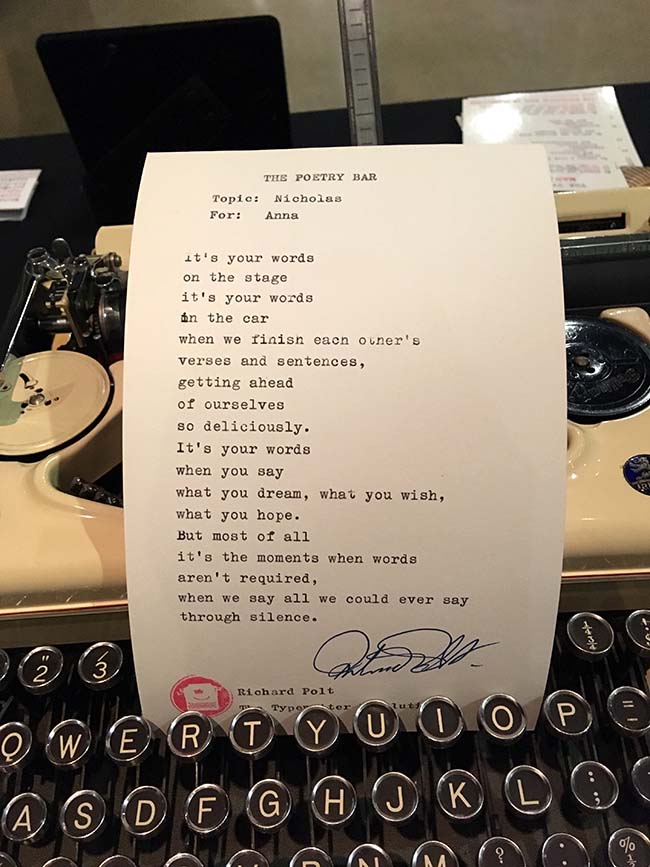 THE POETRY BAR
Topic: Nicholas
For: Anna
it's your words
on the stage
it's your words
in the car
when we finish each other's
verses and sentences,
getting ahead
of ourselves
so deliciously.
It's your words
when you say
what you dream, what you wish,
what you hope.
But most of all
it's the moments when words
aren't required,
when we say all we could ever say
through silence.
Richard Polt
The Typewriter
2 3
Q W E R T Y U I O P
A S D F G H J K L